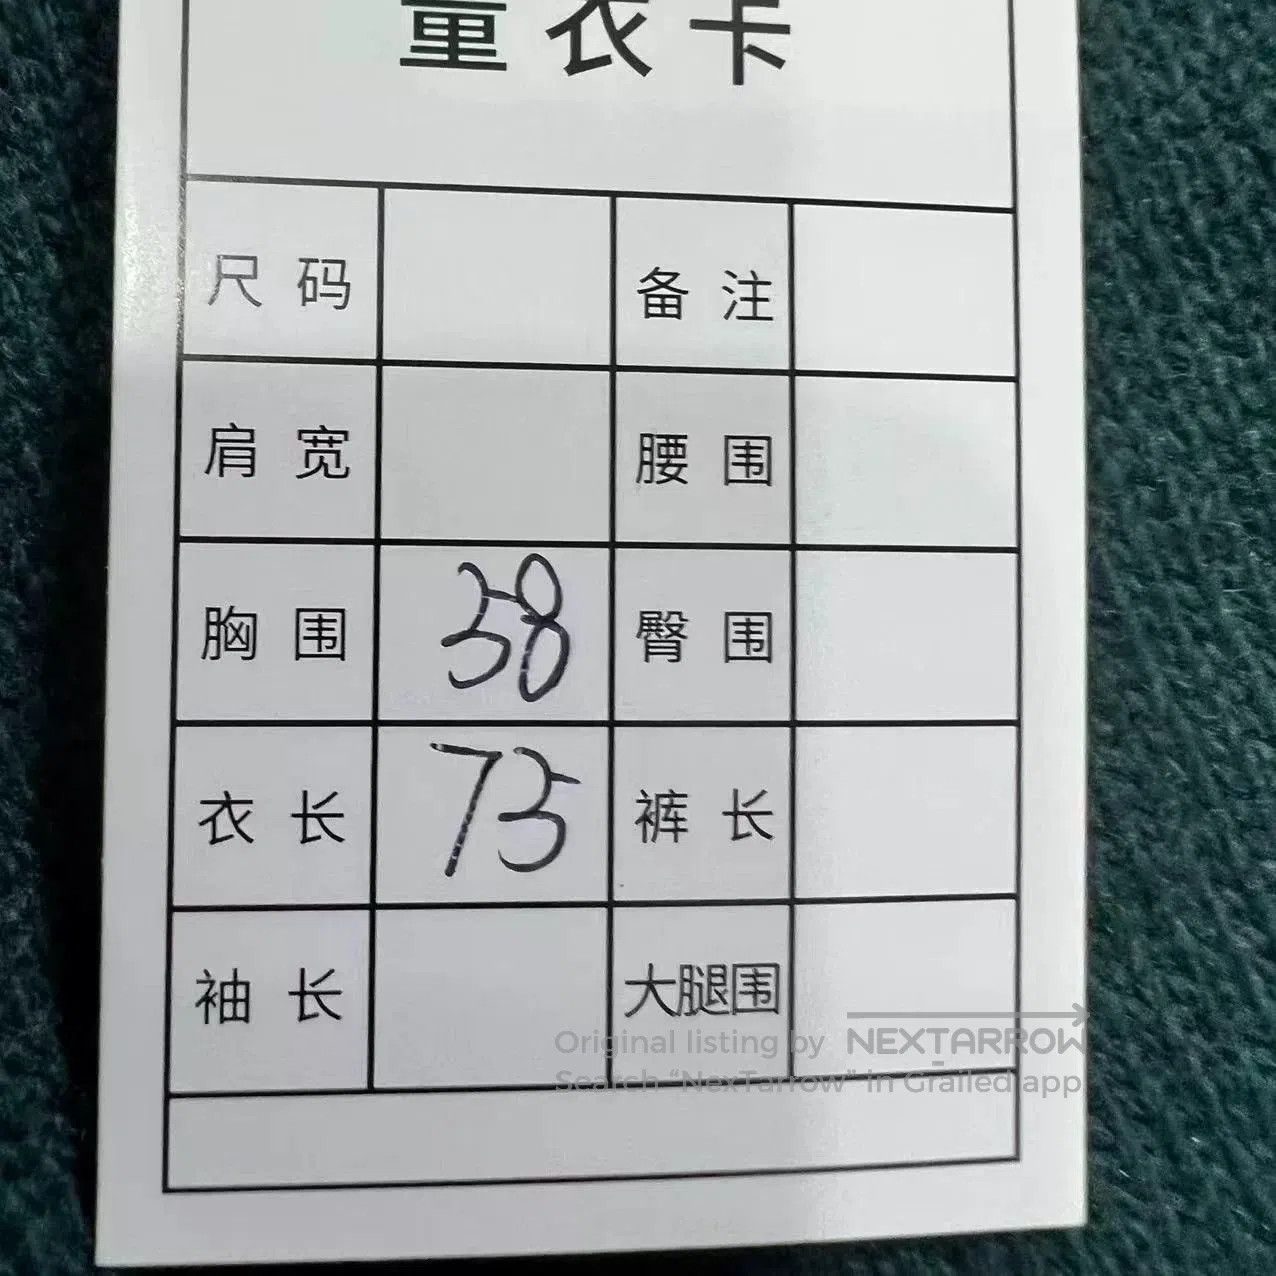 量衣卡
尺码 备注
肩宽 腰围
胸围 38 臀围
衣长 75 裤长
袖长 大腿围
Original listing by NEXTARROW
Search “NexTarrow” in Grailed app